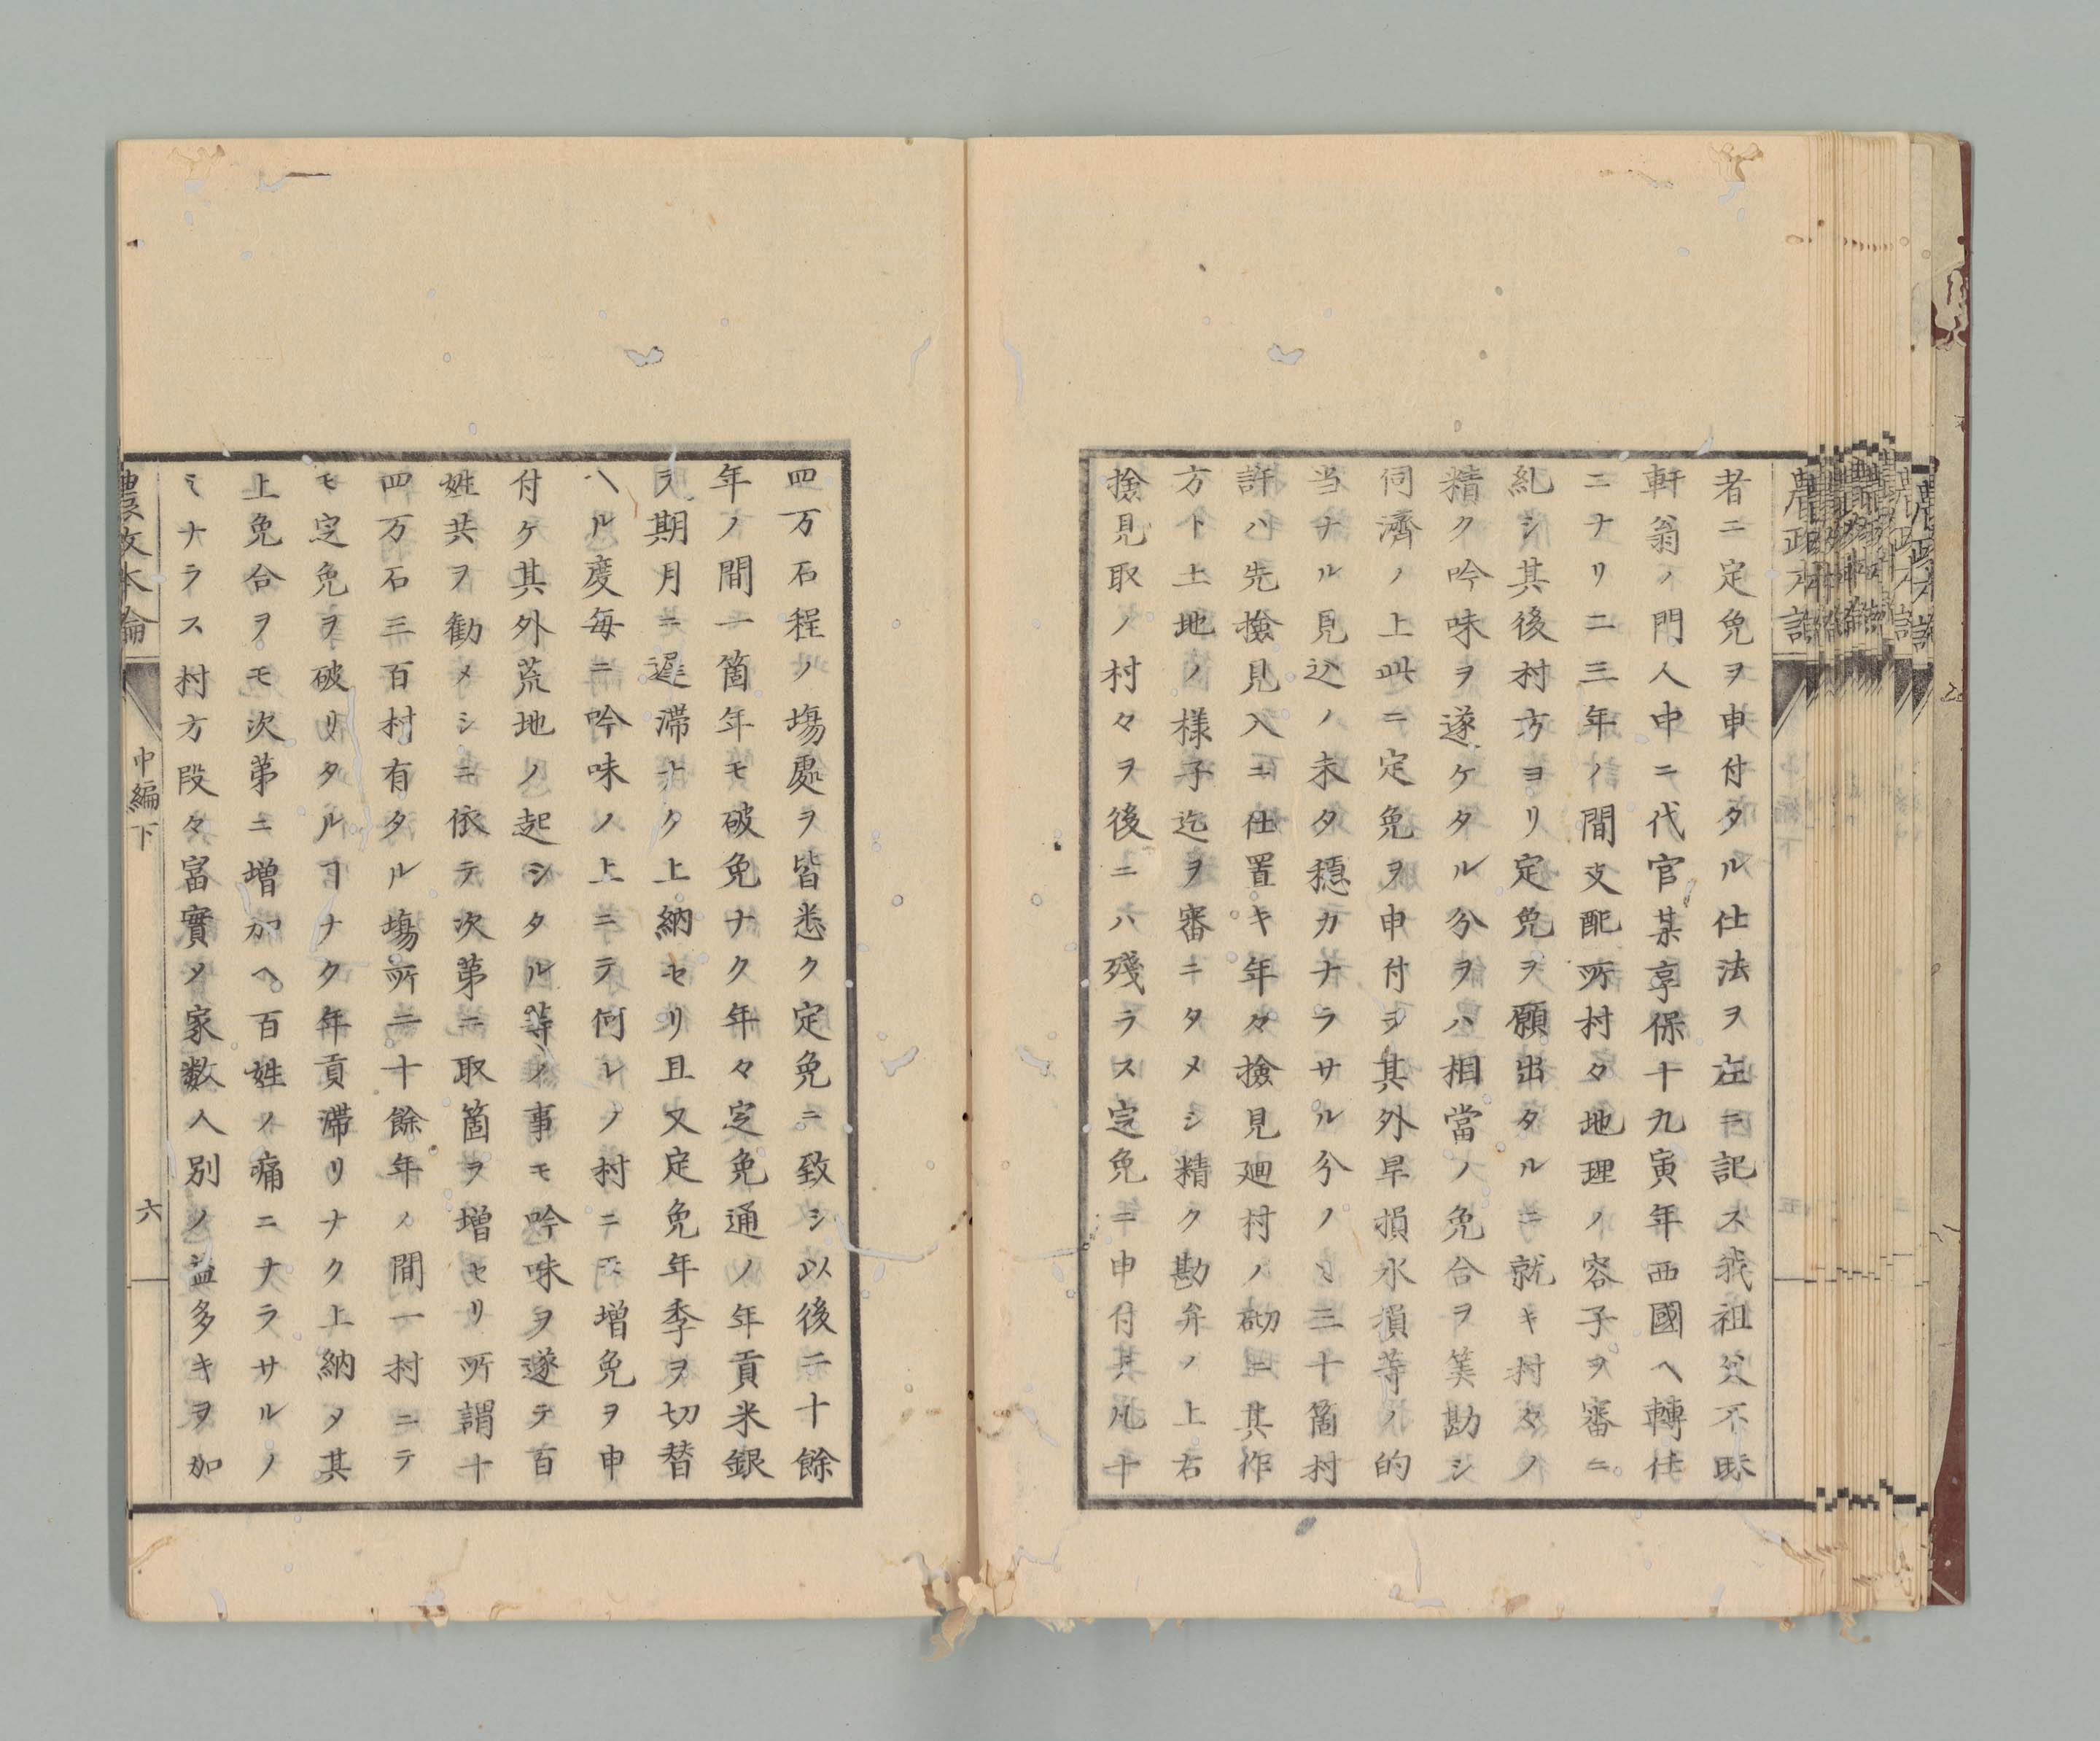 者ニ定免ヲ申付タル仕法ヲ左ニ記ス我祖父不昧
軒翁ノ門人中ニ代官某享保十九寅年西國ヘ轉任
ニナリ二三年ノ間支配所村々地理ノ容子ヲ審ニ
糺シ其後村方ヨリ定免ヲ願出タルニ就キ村々ノ
精ク吟味ヲ遂ケタル分ヲハ相當ノ免合ヲ筭勘シ
伺濟ノ上此ニ定免ヲ申付ラ其外旱損水損等ノ的
当ナル見込ノ未タ穩カナラサル分ノミ三十箇村
許ハ先撿見入ニ仕置キ年々撿見廻村ノ砌ニ其作
方ト土地ノ様子迄ヲ審ニタメシ精ク勘弁ノ上右
撿見取ノ村々ヲ後ニハ殘ラス定免ニ申付其凡十
四万石程ノ塲處ヲ皆悉ク定免ニ致シ以後二十餘
年ノ間一箇年モ破免ナク年々定免通ノ年貢米銀
ヲ期月ニ遲滯ナク上納セリ且又定免年季ヲ切替
ヘル度毎ニ吟味ノ上ニテ何レノ村ニモ増免ヲ申
付ケ其外荒地ノ起シタル等ノ事モ吟味ヲ遂テ百
姓共ヲ勸メシニ依テ次第ニ取箇ヲ増セリ所謂十
四万石三百村有タル塲所二十餘年ノ間一村ニテ
モ定免ヲ破リタルヿナク年貢滯リナク上納タ其
上免合ヲモ次第ニ増加ヘ百姓ノ痛ニナラサルノ
ミナラス村方段々富實メ家数人別ノ益多キヲ加
農政本論
中編下
六